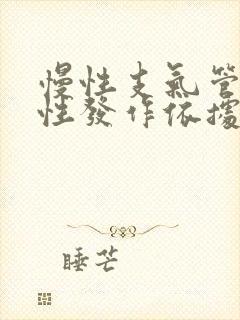 慢性支氣管
性發作依據
睡芒